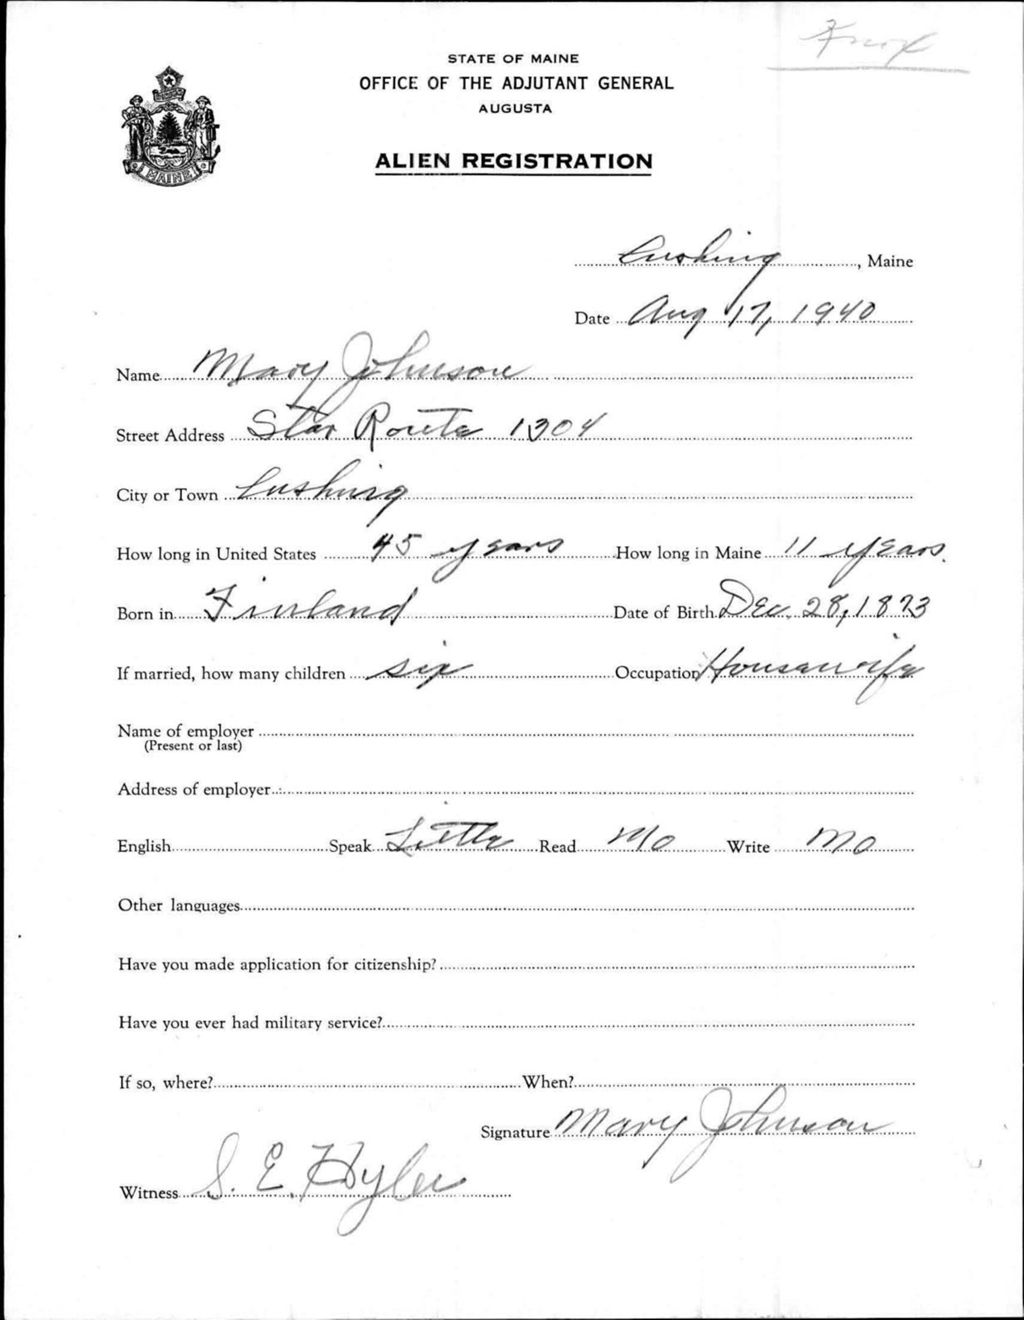 Knox
STATE OF MAINE
OFFICE OF THE ADJUTANT GENERAL
AUGUSTA
ALIEN REGISTRATION
MAINE
Cushing, Maine
Date Aug 17, 1940
Name Mary Johnson
Street Address Star Route 1304
City or Town Cushing
How long in United States 45 years How long in Maine 11 years.
Born in Finland Date of Birth Dec. 28, 1873
If married, how many children six Occupation Housewife
Name of employer
(Present or last)
Address of employer
English Speak Little Read No Write No
Other languages
Have you made application for citizenship?
Have you ever had military service?
If so, where? When?
Signature Mary Johnson
Witness S. E. Hyler